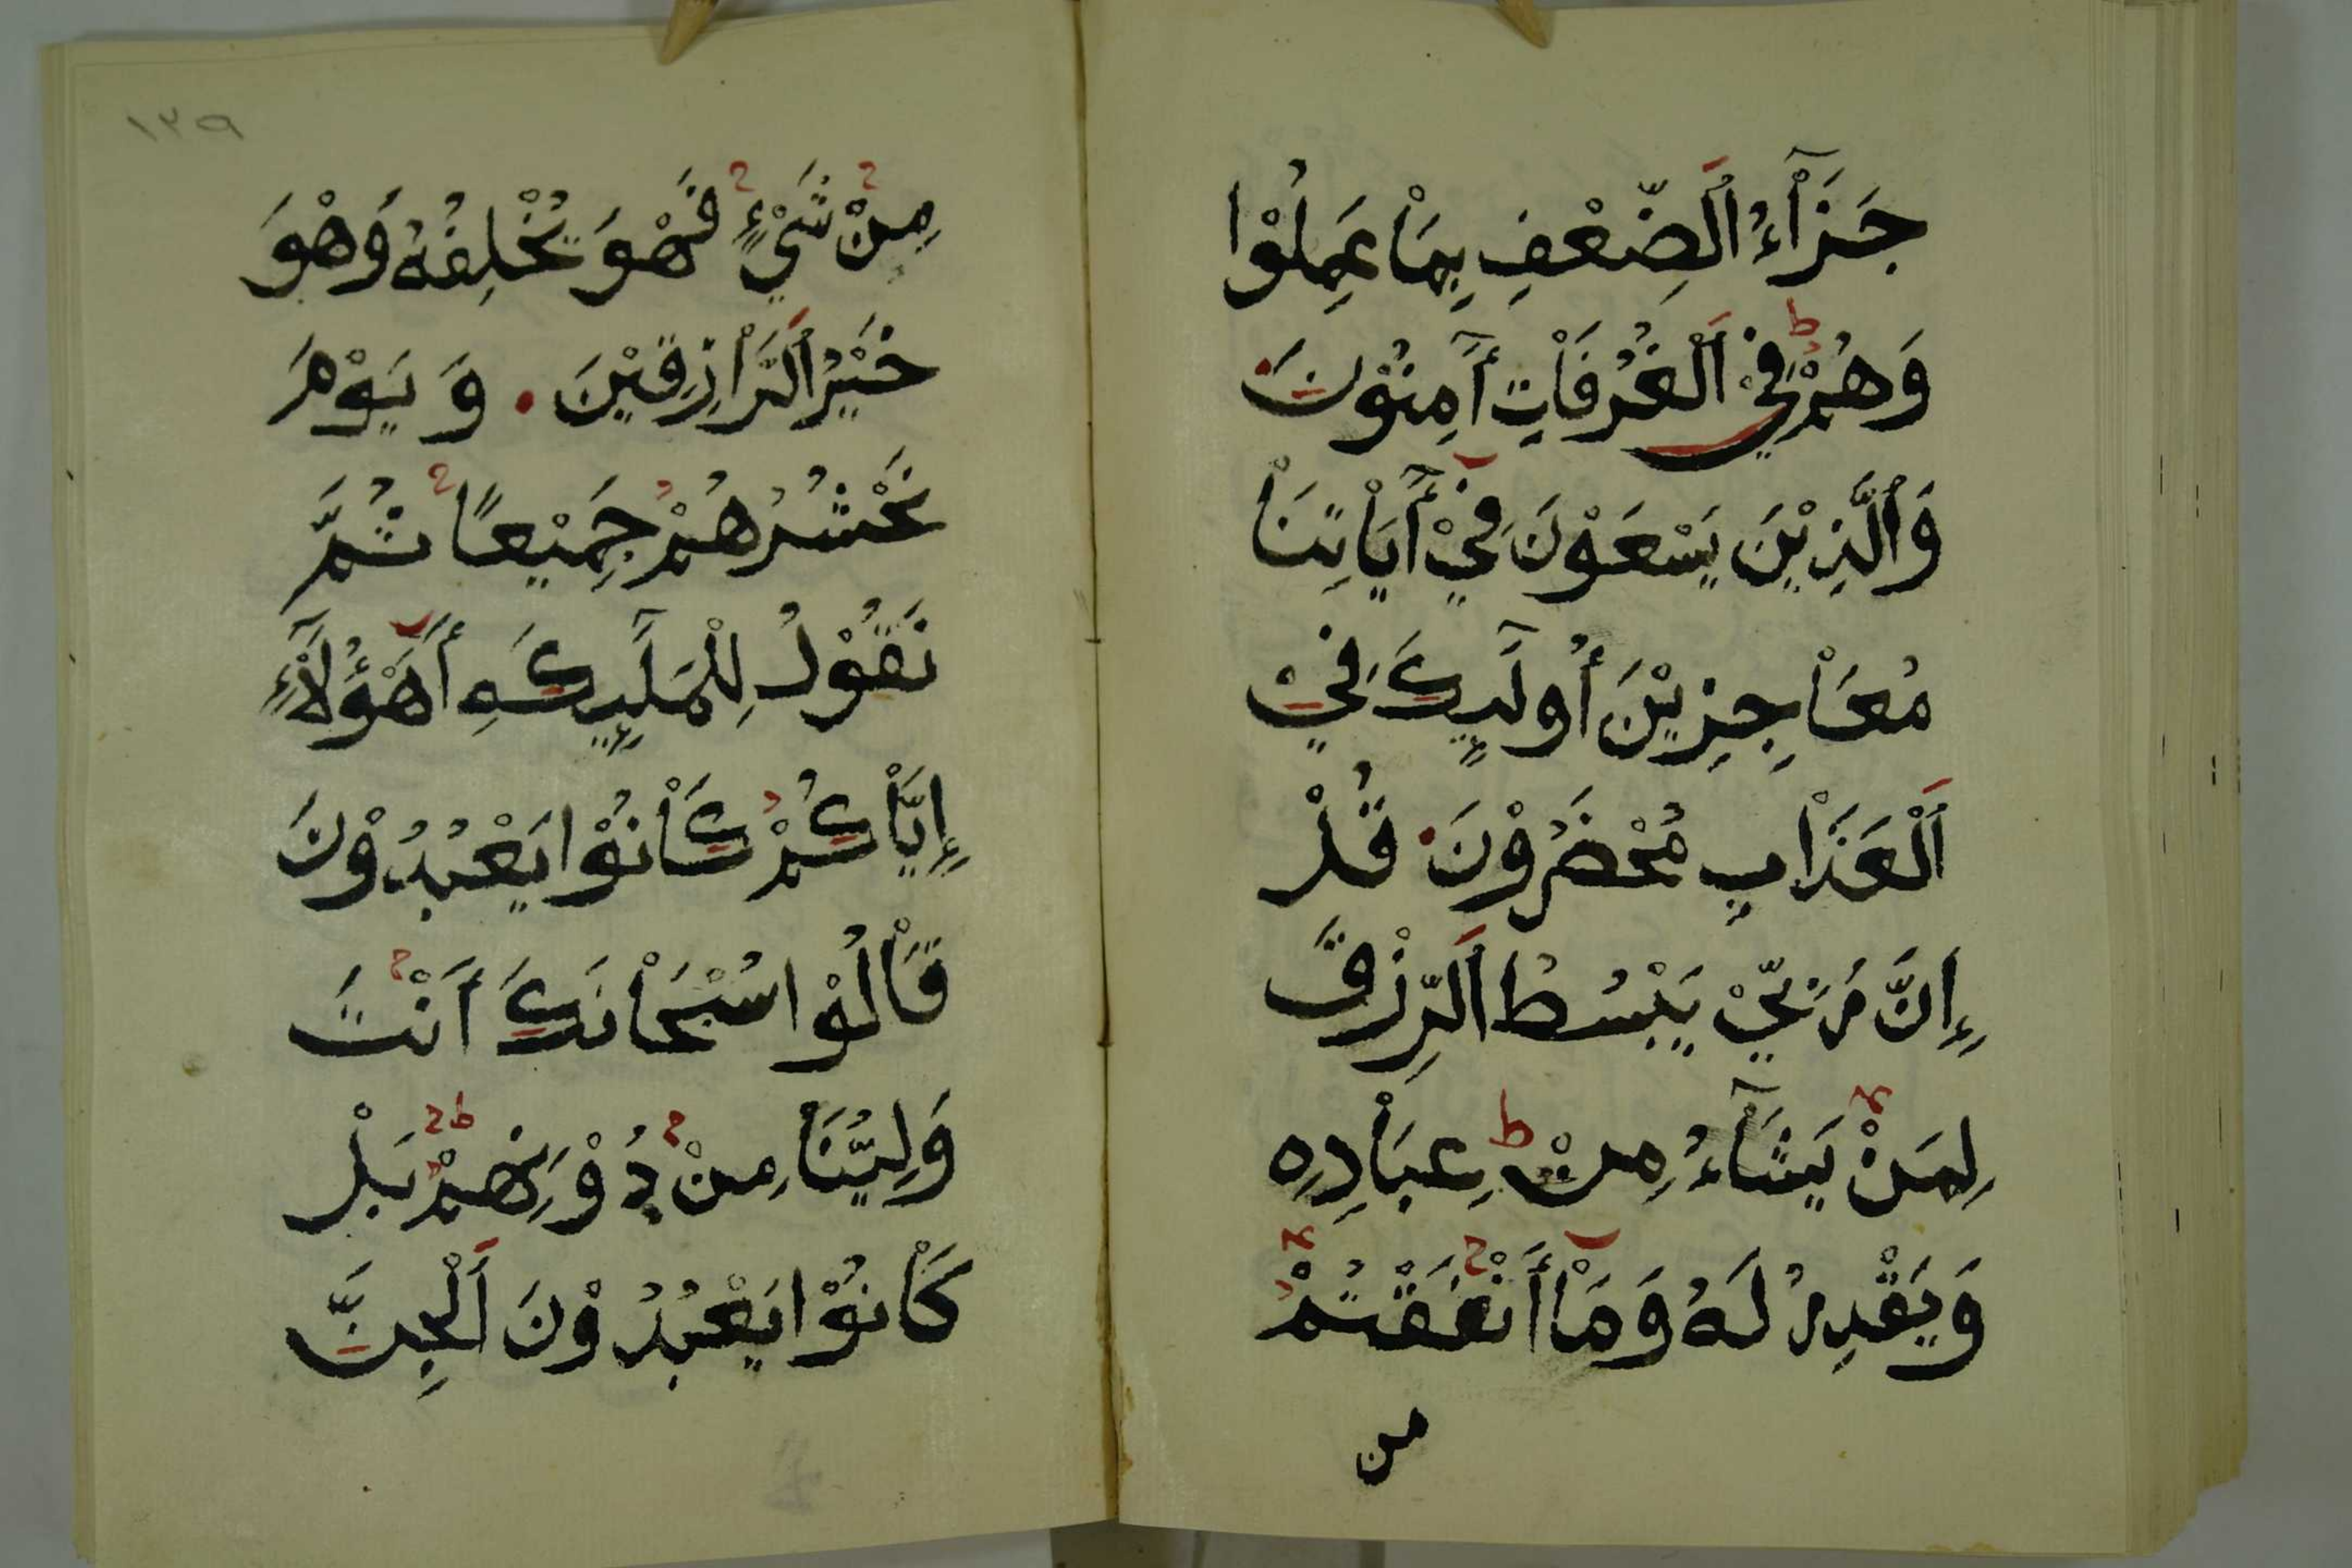 جَزَآءُ ٱلضِّعْفِ بِمَاْ عَمِلُوْا
وَهُمْ فِيْ ٱلْغُرُفَاْتِ أَٓمِنُوْنَ
وَٱلَّذِيْنَ يَسْعَوْنَ فِيْ أَٓيَاْتِنَاْ
مُعَاْجِزِيْنَ أُوْلَٓئِكَ فِيْ
ٱلْعَذَاْبِ مُحْضَرُوْنَ قُلْ
إِنَّ رَبِّيْ يَبْسُطُ ٱلرِّزْقَ
لِمَنْ يَشَآءُ مِنْ عِبَاْدِهِ
وَيَقْدِرُ لَهُ وَمَاْ أَنْفَقْتُمْ
من
١٣٩
مِنْ شَيْءٍ فَهْوَ يُخْلِفُهُ وَهْوَ
خَيْرُ ٱلرَّاْزِقِيْنَ . وَيَوْمَ
نَحْشُرُهُمْ جَمِيْعًا ثُمَّ
نَقُوْلُ لِلْمَلَٓئِكَةِ أَهَٓؤُلَآءِ
إِيَّاْكُمْ كَاْنُوْا يَعْبُدُوْنَ
قَاْلُوْا سُبْحَاْنَكَ أَنْتَ
وَلِيُّنَاْ مِنْ دُوْنِهِمْ بَلْ
كَاْنُوْا يَعْبُدُوْنَ ٱلْجِنَّ